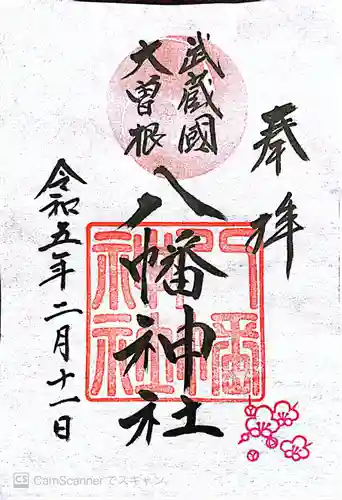 奉拝
武蔵國
大曽根
八幡神社
八幡
神社
令和五年二月十一日
CS CamScannerでスキャン